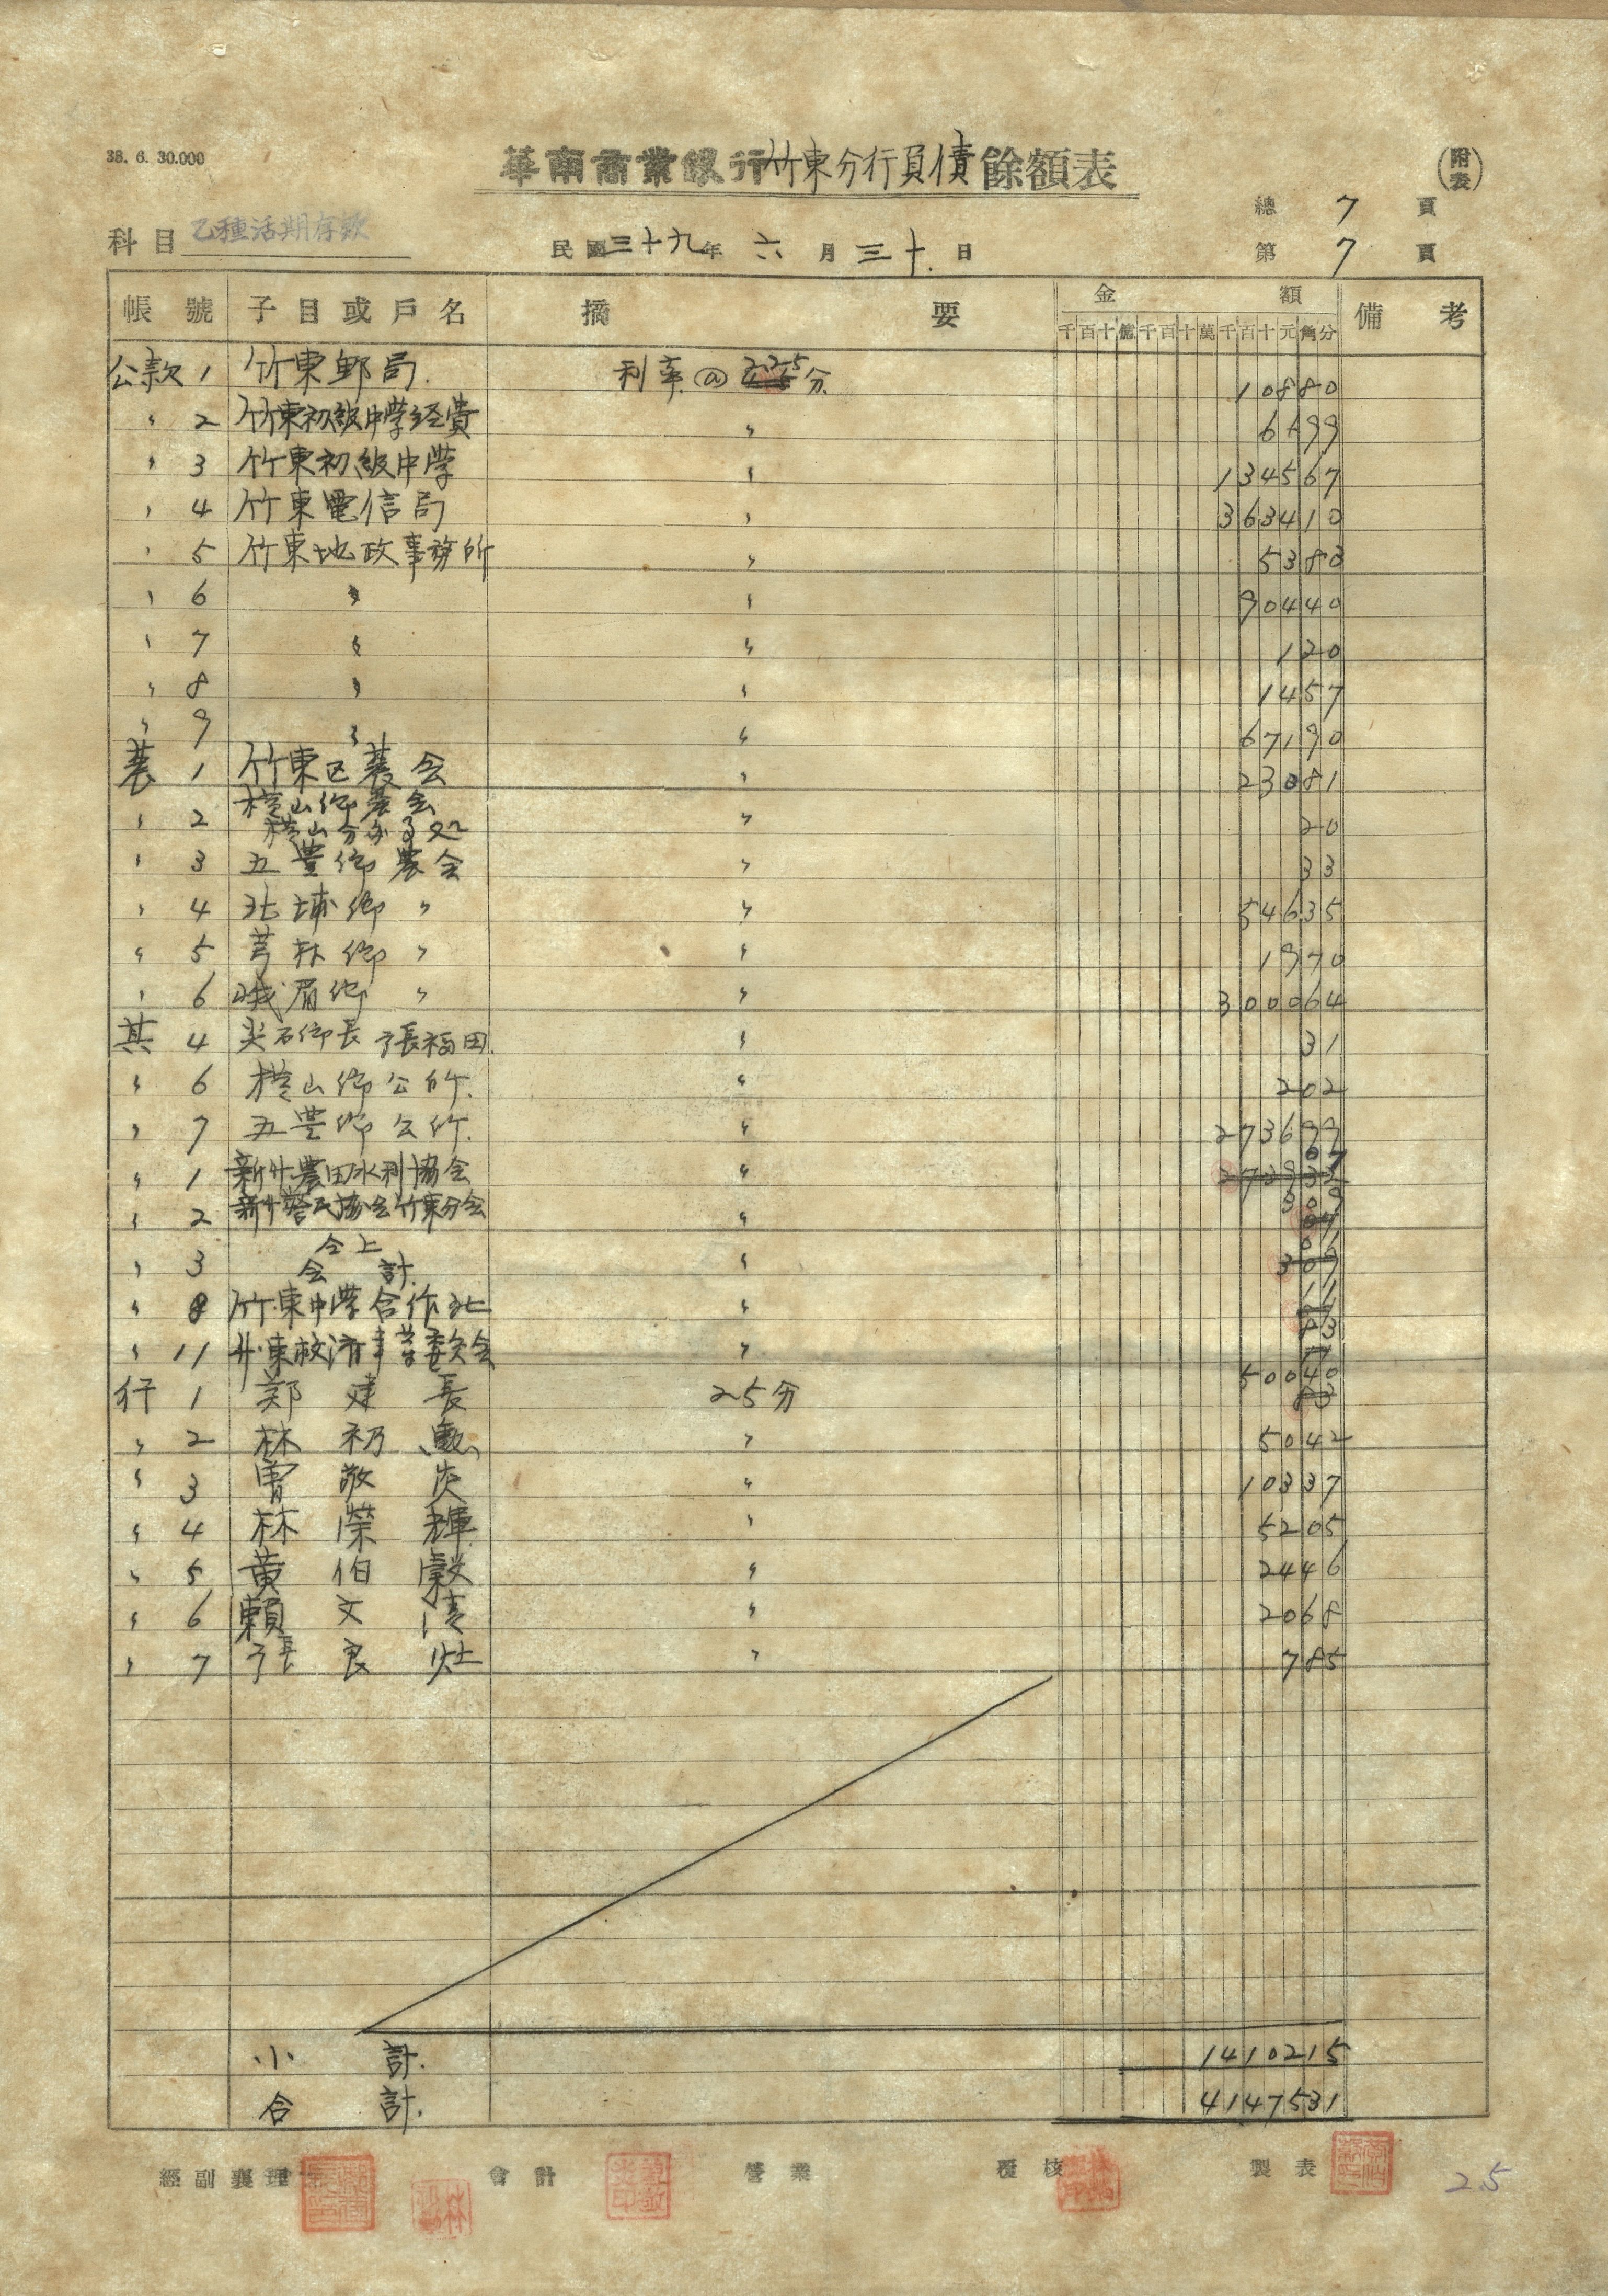 38. 6. 30.000
華南商業銀行竹東分行負債餘額表
(附表)
科目 乙種活期存款
民國三十九年六月三十日
總 7 頁
第 7 頁
帳號 子目或戶名 摘要 金額 備考
千百十億千百十萬千百十元角分
公款 1 竹東郵局. 利率@ 2.25分 10880
〃 2 竹東初級中学経費 〃 6199
〃 3 竹東初級中学 〃 134567
〃 4 竹東電信局 〃 363410
〃 5 竹東地政事務所 〃 5380
〃 6 〃 〃 90440
〃 7 〃 〃 120
〃 8 〃 〃 1457
〃 9 〃 〃 67190
農 1 竹東区農会 〃 23081
〃 2 横山鄉農会 〃 20
横山分办事処
〃 3 五豊鄉農会 〃 33
〃 4 北埔鄉〃 〃 54635
〃 5 芎林鄉〃 〃 1970
〃 6 峨眉鄉〃 〃 300064
其 4 尖石鄉長 張福田. 〃 31
〃 6 横山鄉公所. 〃 202
〃 7 五豊鄉公所. 〃 273699
〃 1 新竹農田水利協会 〃 07
〃 2 新竹警民協会竹東分会 〃 309
〃 3 仝上 〃
会計.
〃 8 竹東中学合作社 〃 11
〃 11 竹東救済事業委員会 〃 83
行 1 郑建長 25分 50040
〃 2 林初勲 〃 5042
〃 3 曾敬炎 〃 10337
〃 4 林榮輝 〃 5205
〃 5 黄伯穀 〃 2446
〃 6 賴文清 〃 2068
〃 7 張良灶 〃 785
小計. 1410215
合計. 4147531
經副襄理 會計 營業 覆核 製表
2.5